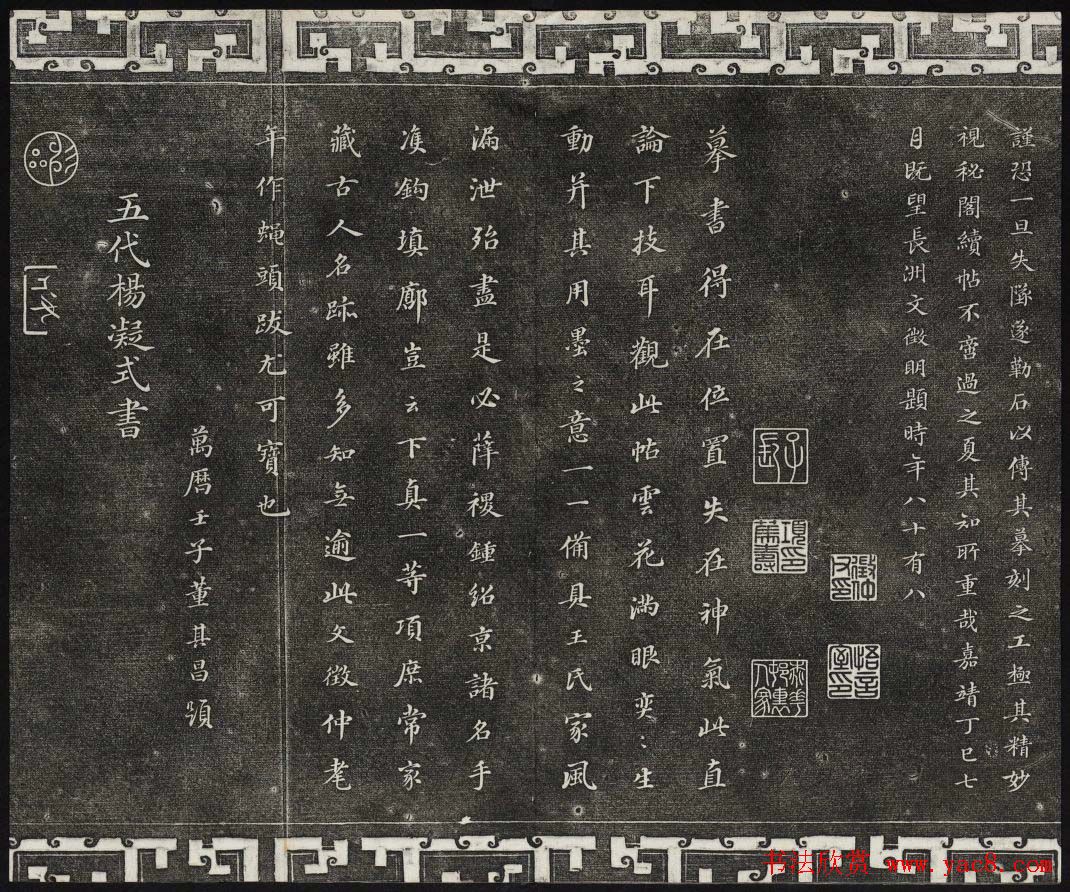 謹恐一旦失墜遂勒石以傳其摹刻之工極其精妙
視秘閣續帖不啻過之夏其知所重哉嘉靖丁巳七
月既望長洲文徵明題時年八十有八
徵仲父印
悟言室印
子長
項篤壽印
摹書得在位置失在神氣此直
論下技耳觀此帖雲花滿眼奕〻生
動并其用墨之意一一備具王氏家風
漏泄殆盡是必薛稷鍾紹京諸名手
鈎填廓豈云下真一等項庶常家
藏古人名跡雖多知無逾此文徵仲耄
年作蝇頭跋尤可寶也
萬曆壬子董其昌題
五代楊凝式書
书法欣赏 www.yac8.com